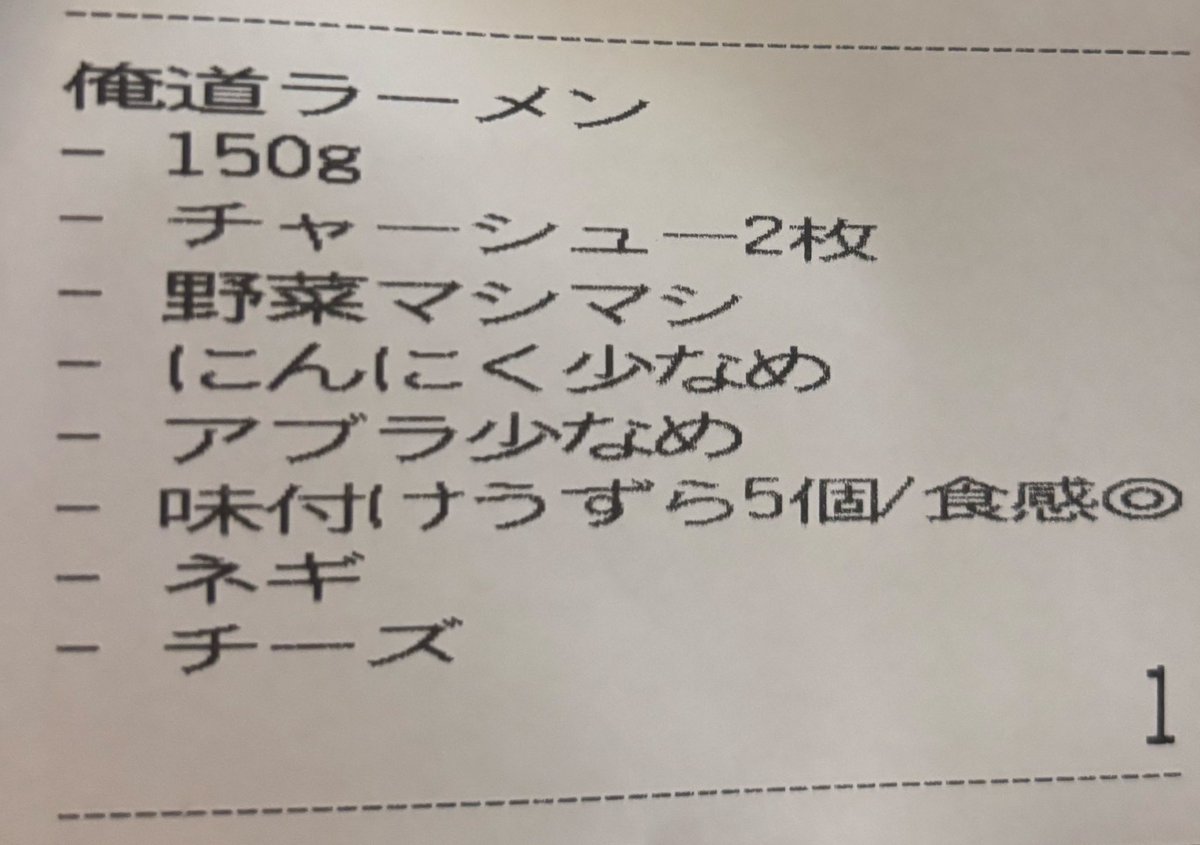 俺道ラーメン
- 150g
- チャーシュー2枚
- 野菜マシマシ
- にんにく少なめ
- アブラ少なめ
- 味付けうずら5個/食感◎
- ネギ
- チーズ
1